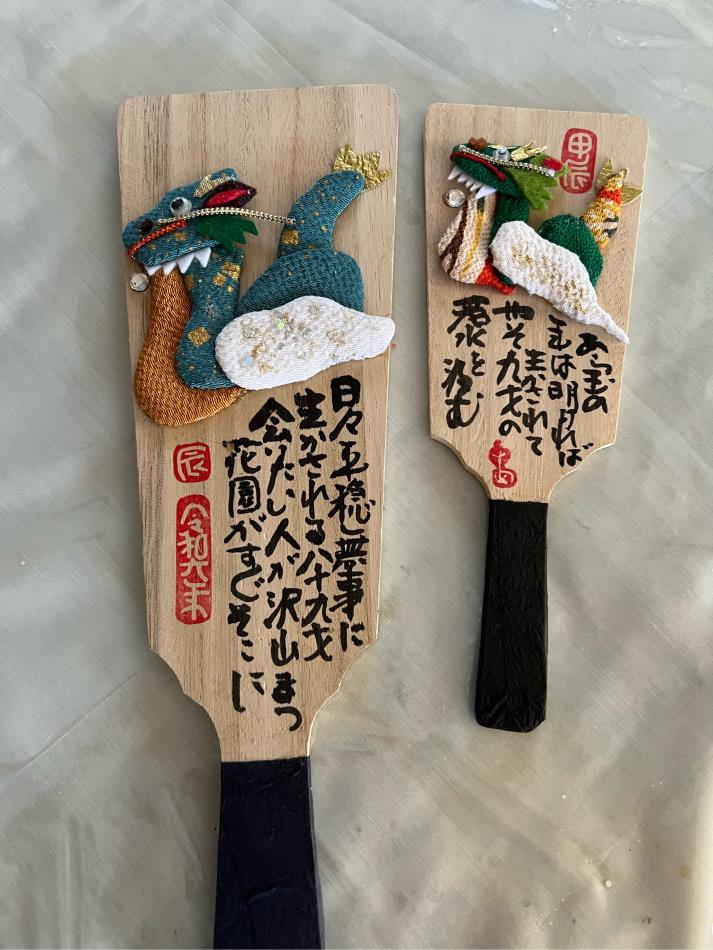 日々平穏無事に
生かされる八十九才
会いたい人が沢山まつ
花園がすぐそこに
辰
令和六年
甲辰
あら玉の
年は明ければ
生かされて
やそ九才の
若水を汲む